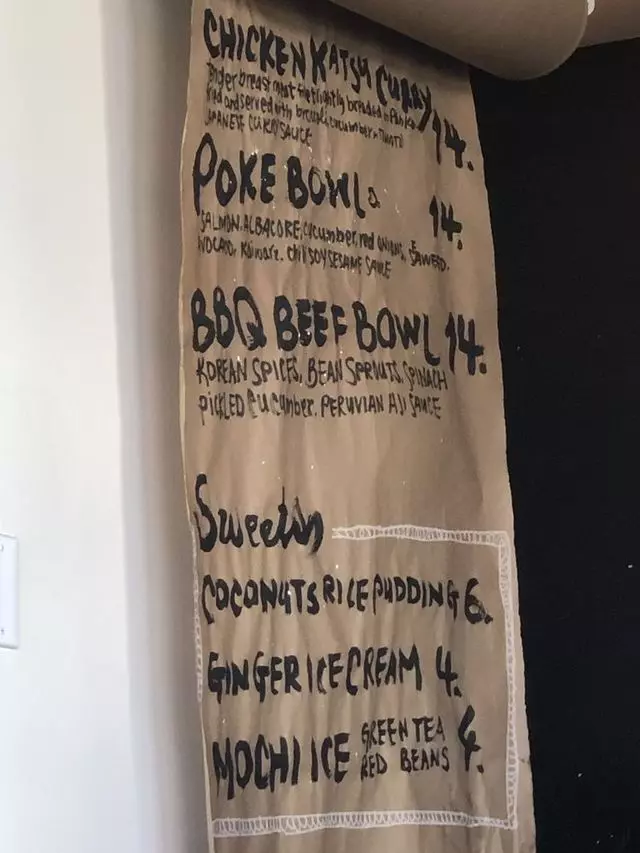 CHICKEN KATSU CURRY 14.
Tender breast meat lightly breaded in Panko
fried and served with cucumber
JAPANESE CURRY SAUCE
POKE BOWL 14.
SALMON. ALBACORE, cucumber, red onions, SEAWEED.
AVOCADO, CHILI SOY SESAME SAUCE
BBQ BEEF BOWL 14.
KOREAN SPICES, BEAN SPROUTS. SPINACH
PICKLED CUCUMBER. PERUVIAN AJI SAUCE
Sweets
COCONUTS RICE PUDDING 6.
GINGER ICE CREAM 4.
MOCHI ICE GREEN TEA RED BEANS 4.